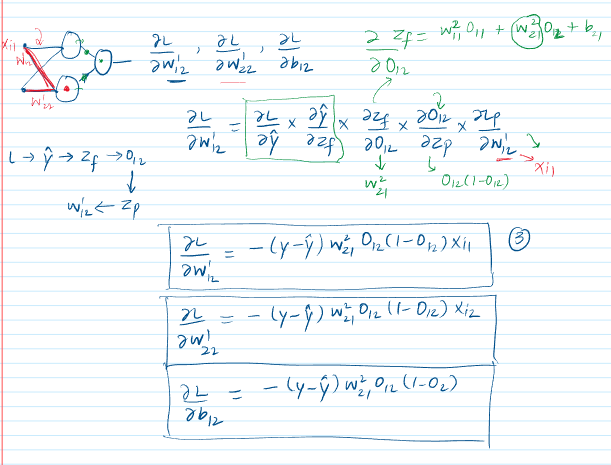 xi1
w12
w'22
∂L/∂w'12 , ∂L/∂w'22 , ∂L/∂b12
∂/∂O12 Zf = w²11 O11 + w²21 O12 + b21
∂L/∂w'12 = ∂L/∂ŷ × ∂ŷ/∂Zf × ∂Zf/∂O12 × ∂O12/∂Zp × ∂Zp/∂w'12 → xi1
w²21
O12(1-O12)
L → ŷ → Zf → O12
w'12 ← Zp
∂L/∂w'12 = -(y-ŷ) w²21 O12(1-O12) xi1
③
∂L/∂w'22 = -(y-ŷ) w²21 O12 (1-O12) xi2
∂L/∂b12 = -(y-ŷ) w²21 O12 (1-O2)